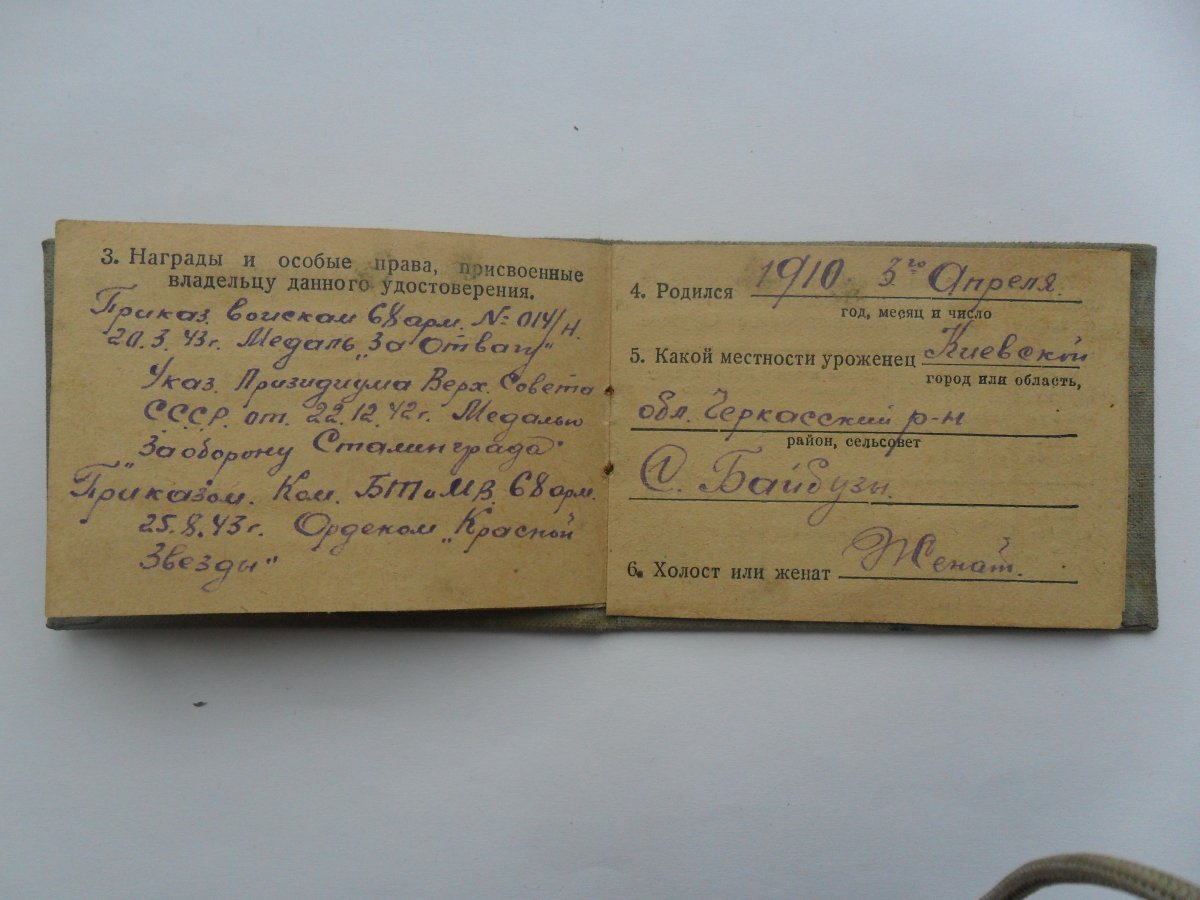 3. Награды и особые права, присвоенные
владельцу данного удостоверения.
Приказ. войскам 68 арм. № 014/н.
20.3.43г. Медаль „За Отвагу"
Указ. Призидиума Верх. Совета
СССР. от. 22.12.42г. Медалью
„За оборону Сталинграда"
Приказом. Ком. БТиМВ. 68 арм.
25.8.43г. Орденом „Красной
Звезды"
4. Родился 1910 3го Апреля.
год, месяц и число
5. Какой местности уроженец Киевской
город или область,
обл. Черкасский р-н
район, сельсовет
С. Байбузы.
6. Холост или женат Женат.